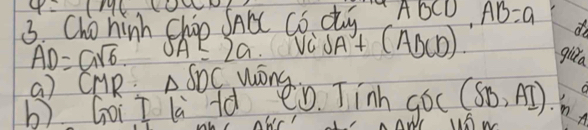 3. Cho hình chóp SABC có đáy ABCD, AB=a
AD=a√6. SA=2a. Và SA⊥(ABCD).
giữa
a) CMR: Δ SDC vuông.
b) Gọi I là tđ CD. Tính góc (SB, AI).